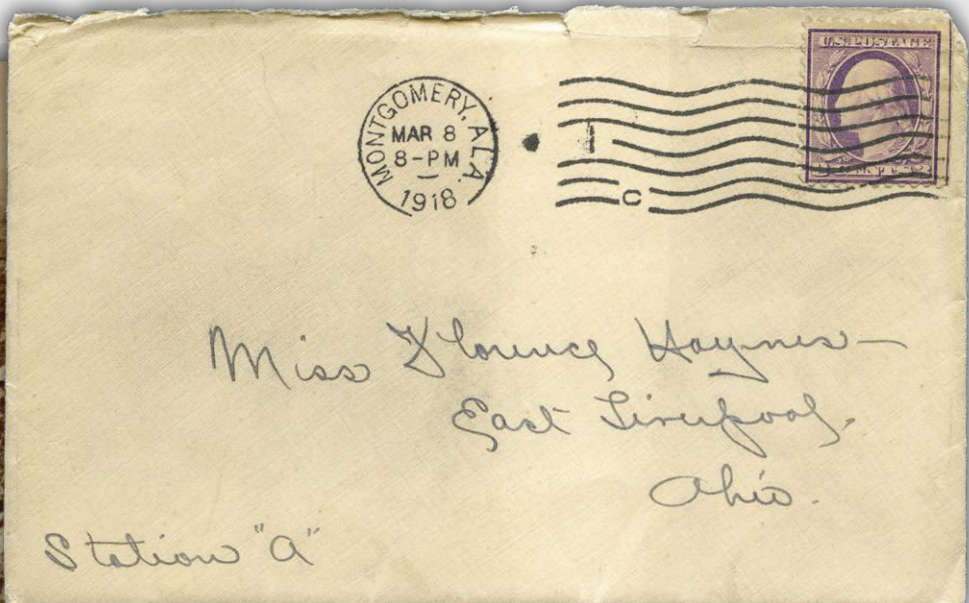 MONTGOMERY, ALA.
MAR 8
8-PM
1918
1
C
U.S. POSTAGE
Miss Florence Haynes—
East Liverpool,
Ohio.
Station "A"